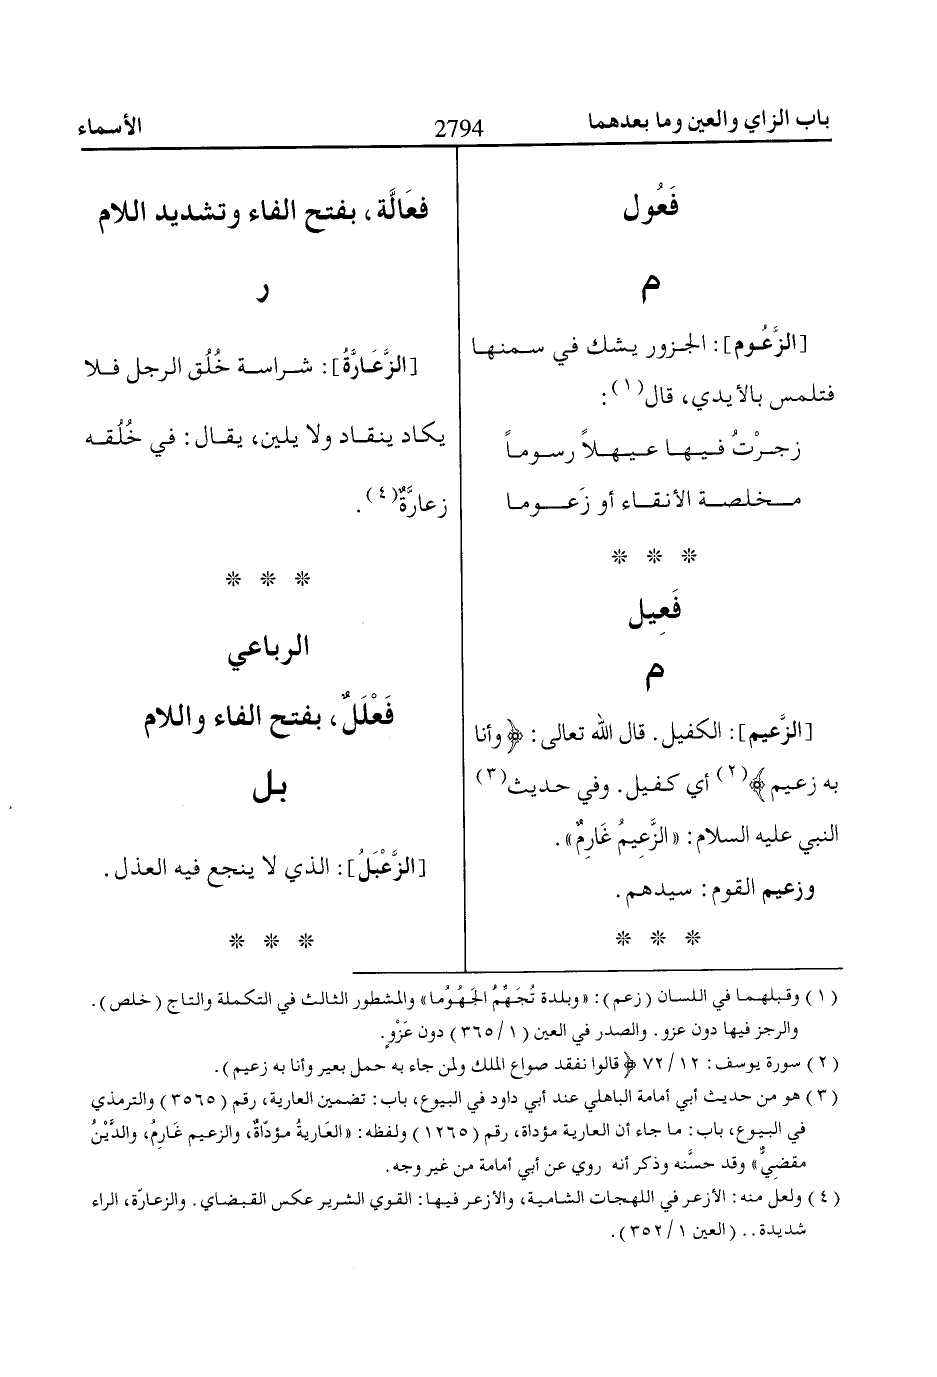 باب الزاي والعين وما بعدهما
2794
الأسماء
فَعُول
م
[الزَّعُوم]: الجزور يشك في سمنها
فتلمس بالأيدي، قال(١):
زجرْتُ فيها عيهلاً رسوماً
مخلصة الأنقاء أو زَعوما
* * *
فَعِيل
م
[الزَّعيم]: الكفيل. قال الله تعالى: ﴿وأنا
به زعيم﴾(٢) أي كفيل. وفي حديث(٣)
النبي عليه السلام: «الزَّعِيمُ غَارِمٌ».
وزعيم القوم: سيدهم.
* * *
فعَالَّة، بفتح الفاء وتشديد اللام
ر
[الزَّعَارَّةُ]: شراسة خُلُق الرجل فلا
يكاد ينقاد ولا يلين، يقال: في خُلُقه
زعارَّةٌ(٤).
* * *
الرباعي
فَعْلَلٌ، بفتح الفاء واللام
بل
[الزَّعْبَلُ]: الذي لا ينجع فيه العذل.
* * *
(١) وقبلهما في اللسان (زعم): «وبلدة تُجَهِّمُ الجَهُوُما» والمشطور الثالث في التكملة والتاج (خلص).
والرجز فيها دون عزو. والصدر في العين (١/ ٣٦٥) دون عَزْوٍ.
(٢) سورة يوسف: ١٢/ ٧٢ ﴿قالوا نفقد صواع الملك ولمن جاء به حمل بعير وأنا به زعيم).
(٣) هو من حديث أبي أمامة الباهلي عند أبي داود في البيوع، باب: تضمين العارية، رقم (٣٥٦٥) والترمذي
في البيوع، باب: ما جاء أن العارية مؤداة، رقم (١٢٦٥) ولفظه: «العَاريةُ مؤدّاةٌ، والزعيم غَارِمُ، والدَّيْنُ
مقضِيٌّ» وقد حسَّنه وذكر أنه روي عن أبي أمامة من غير وجه.
(٤) ولعل منه: الأزعر في اللهجات الشامية، والأزعر فيها: القوي الشرير عكس القبضاي. والزعارّة، الراء
شديدة.. (العين ١/ ٣٥٢).